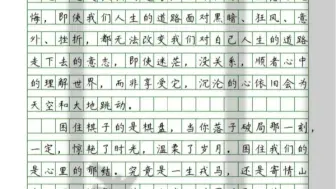 悔，即使我们人生的道路面对黑暗、狂风、意
外、挫折，都无法改变我们对自己人生的道路
走下去的意志，即使迷茫，没关系，顺者心中
的理解世界，而非享受它，沉沦的心依旧会为
天空和大地跳动。
困住棋子的是棋盘，当你落子破局那一刻，
一定，惊艳了时光，温柔了岁月。困住我们的
是心里的郁结。究竟是一生戎马，还是寄情山